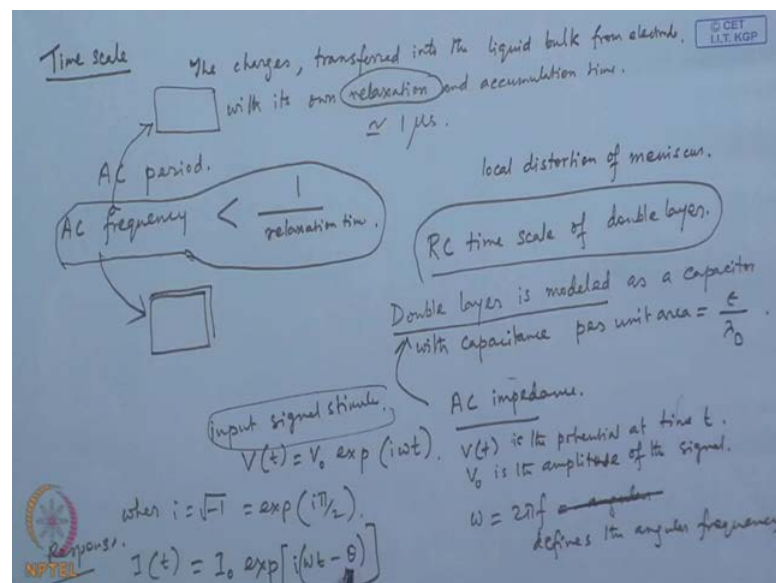 © CET
I.I.T. KGP
Time scale
The charges, transferred into the liquid bulk from electrode.
with its own relaxation and accumulation time.
≈ 1 μs.
AC period.
AC frequency < 1 / relaxation time.
local distortion of meniscus.
RC time scale of double layers.
Double layer is modeled as a capacitor
with capacitance per unit area = ε / λD.
AC impedance.
input signal stimulus.
V(t) = V₀ exp (iωt).
V(t) is the potential at time t.
V₀ is the amplitude of the signal.
ω = 2πf
defines the angular frequency
when i = √-1 = exp (iπ/2).
Response.
I(t) = I₀ exp [i(ωt - θ)]
NPTEL